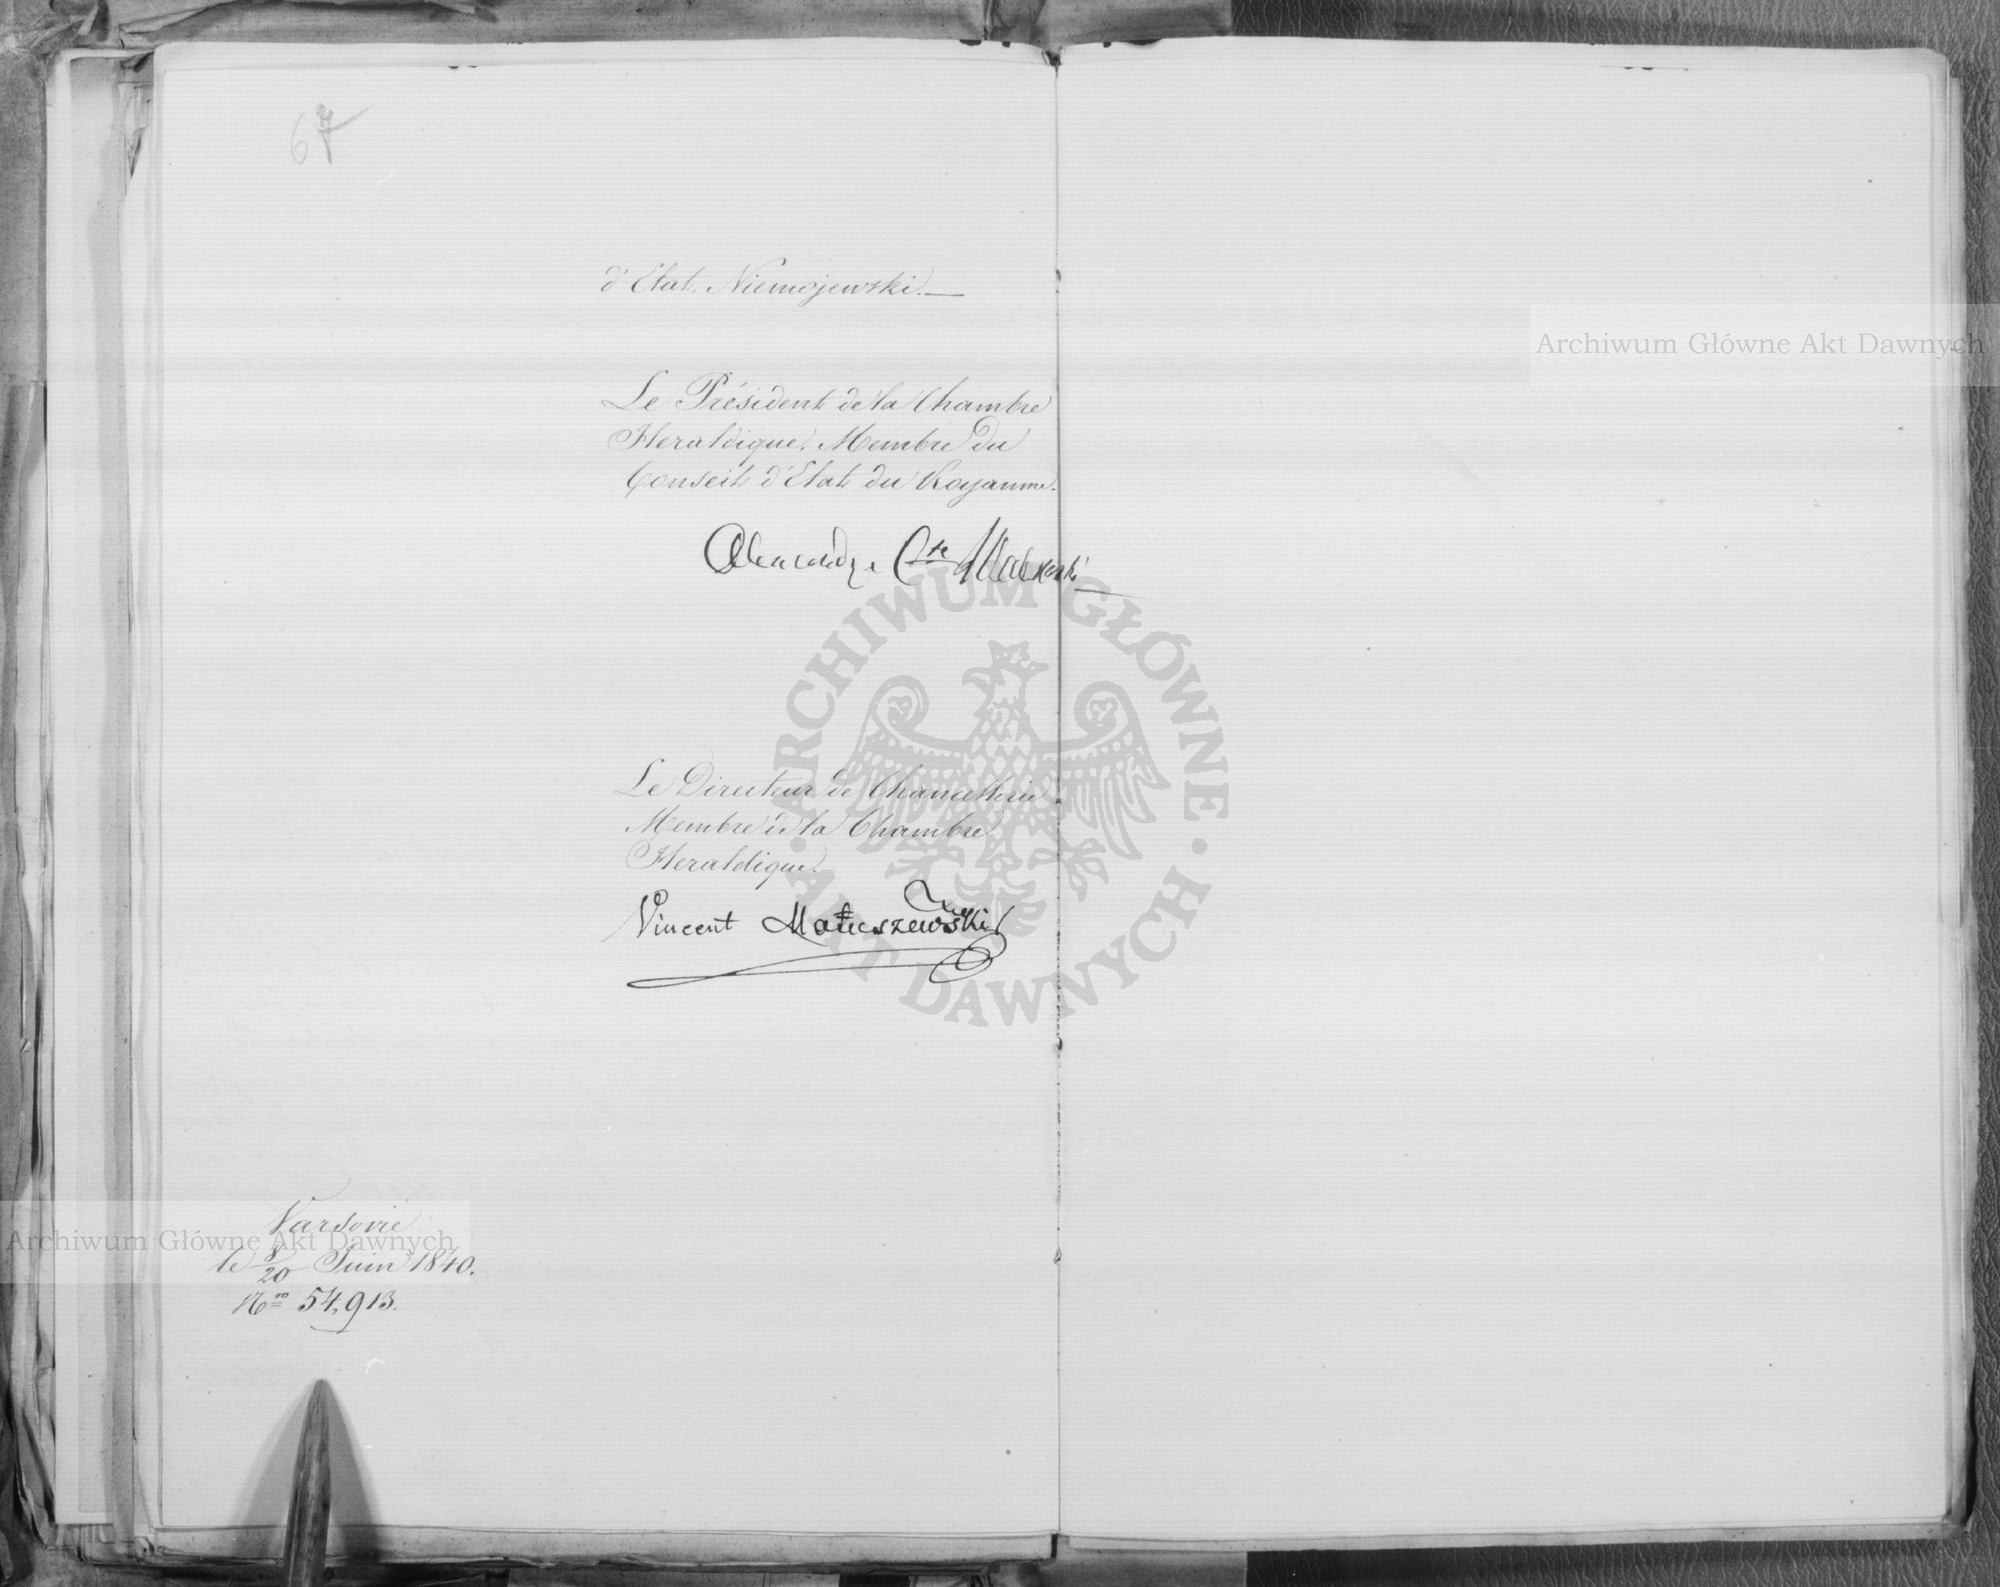 67
d'Etat Niemojewski.—
Le Président de la Chambre
Heraldique, Membre du
Conseil d'Etat du Royaume.
Alexandre Cte
Le Directeur de Chancellerie
Membre de la Chambre
Heraldique.
Vincent Matuszewski
Varsovie
le 8/20 Juin 1840.
Nro 54,913.
Archiwum Główne Akt Dawnych
Archiwum Główne Akt Dawnych
ARCHIWUM GŁÓWNE
AKT DAWNYCH